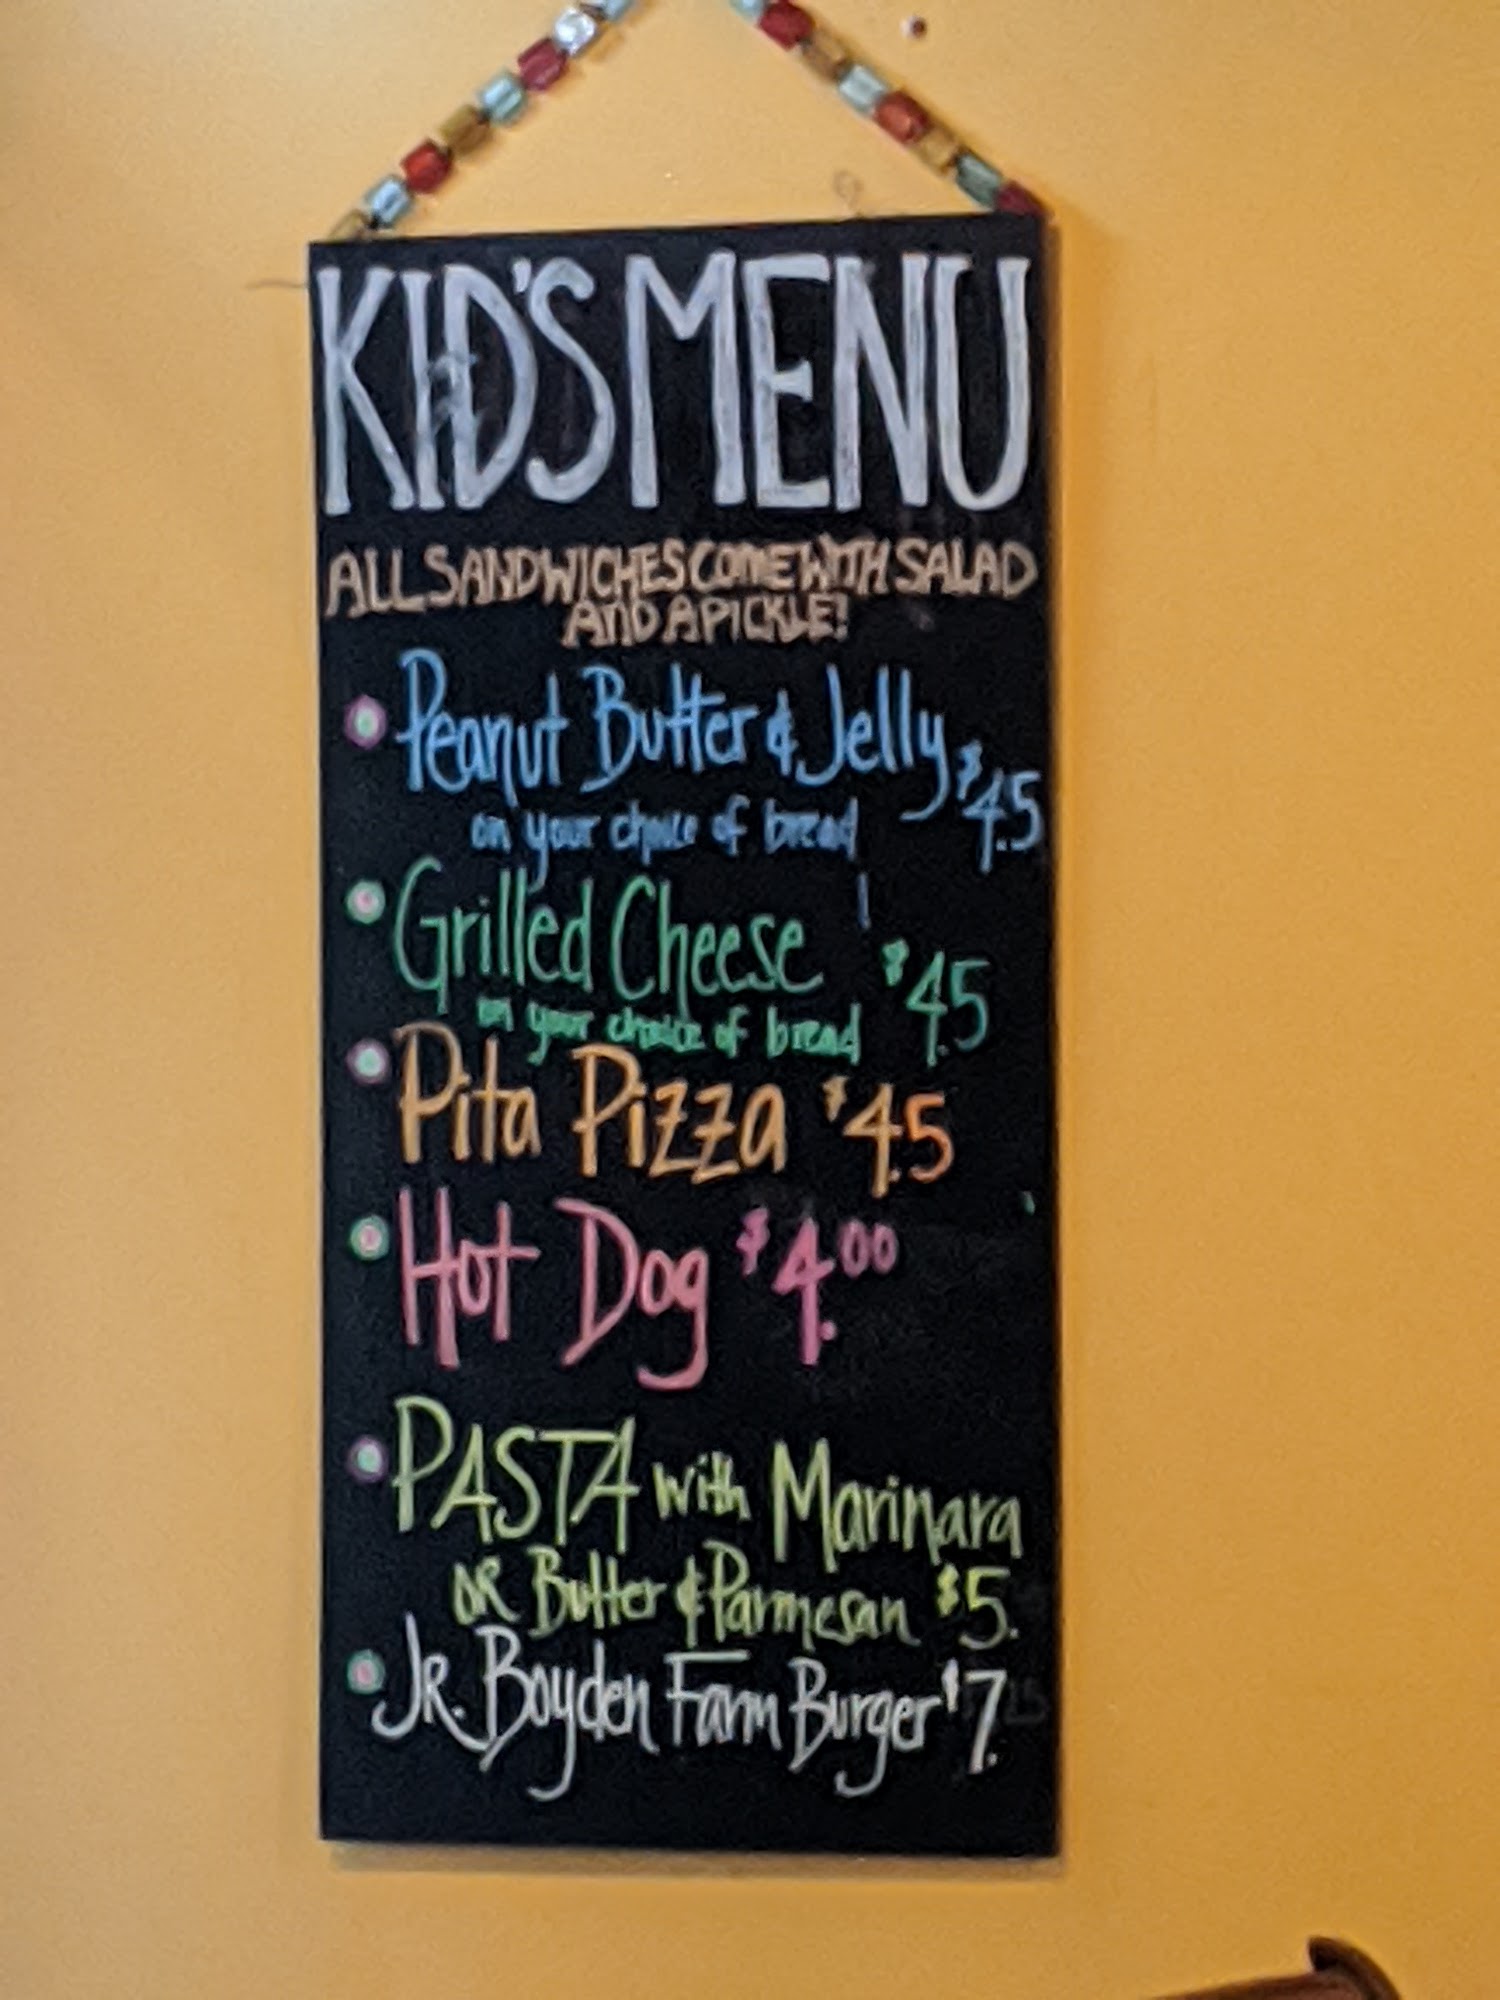 KID'S MENU
ALL SANDWICHES COME WITH SALAD
AND A PICKLE!
Peanut Butter & Jelly $4.5
on your choice of bread
Grilled Cheese $4.5
on your choice of bread
Pita Pizza $4.5
Hot Dog $4.00
PASTA with Marinara
OR Butter & Parmesan $5.
JR. Boyden Farm Burger $7.